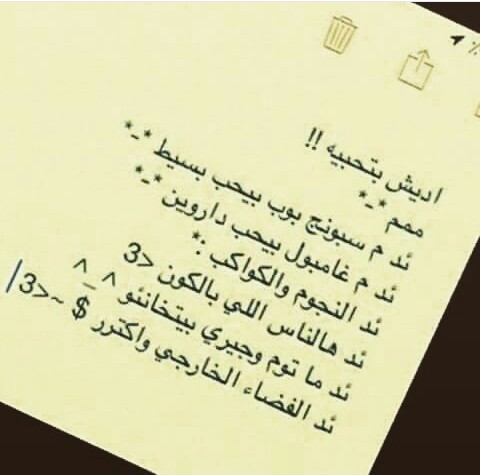 اديش بتحبيه !!
ممم *_*
ئد م سبونج بوب بيحب بسيط *_*
ئد م غامبول بيحب داروين *_*
ئد النجوم والكواكب :*
ئد هالناس اللي بالكون <3
ئد ما توم وجيري بيتخانئو ^_^
ئد الفضاء الخارجي واكترر $ ~<3